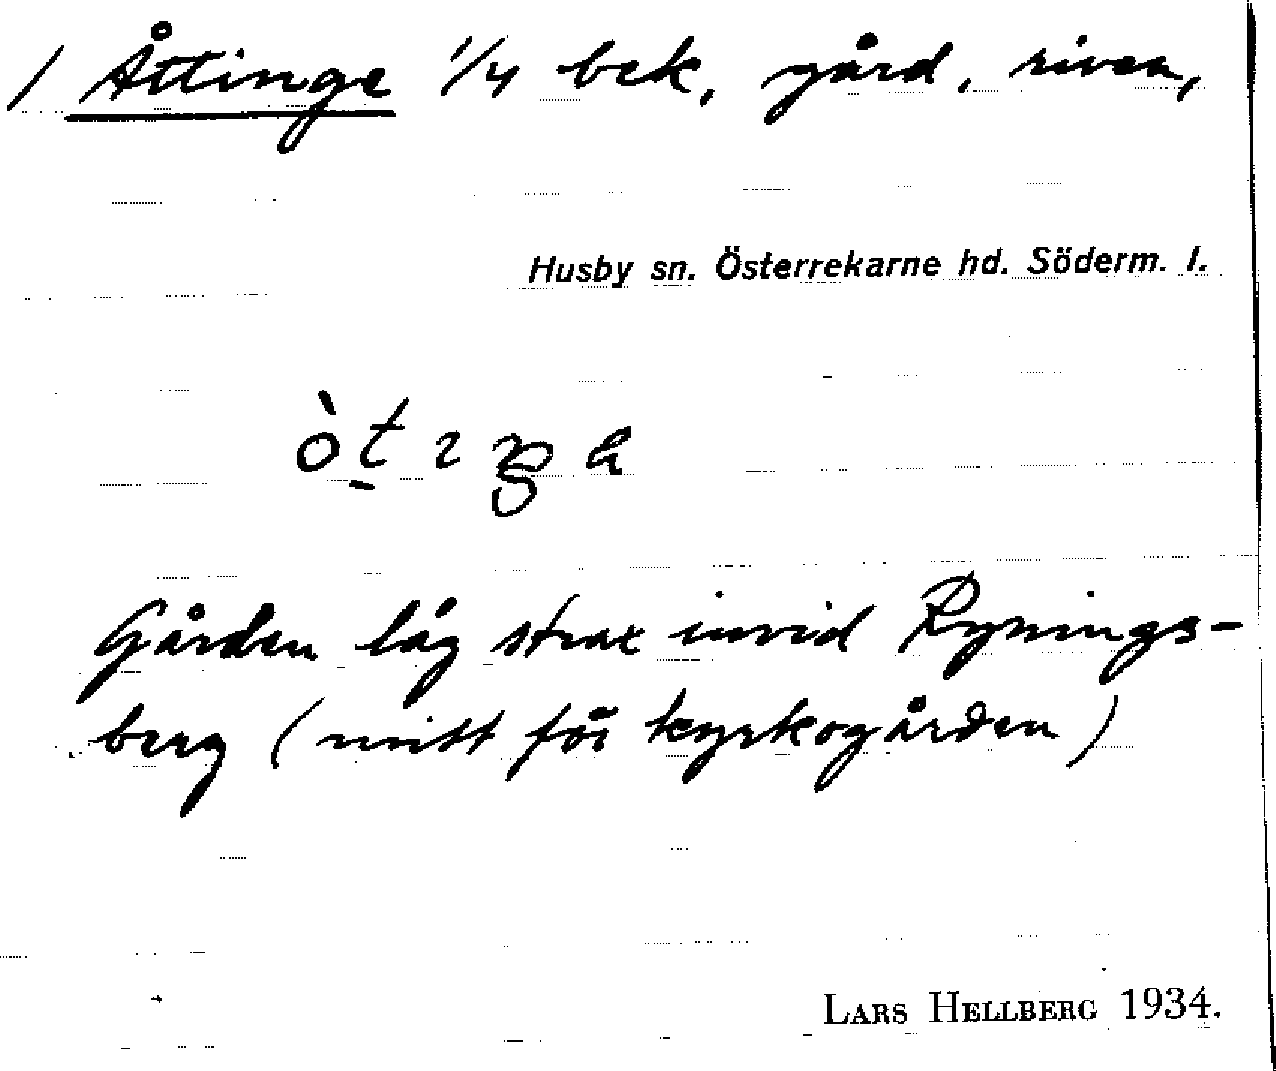 / Åttinge 1/4 bek, gård, riven,
Husby sn. Österrekarne hd. Söderm. l.
Gården låg strax invid Rynings-
berg (mitt för kyrkogården)
LARS HELLBERG 1934.